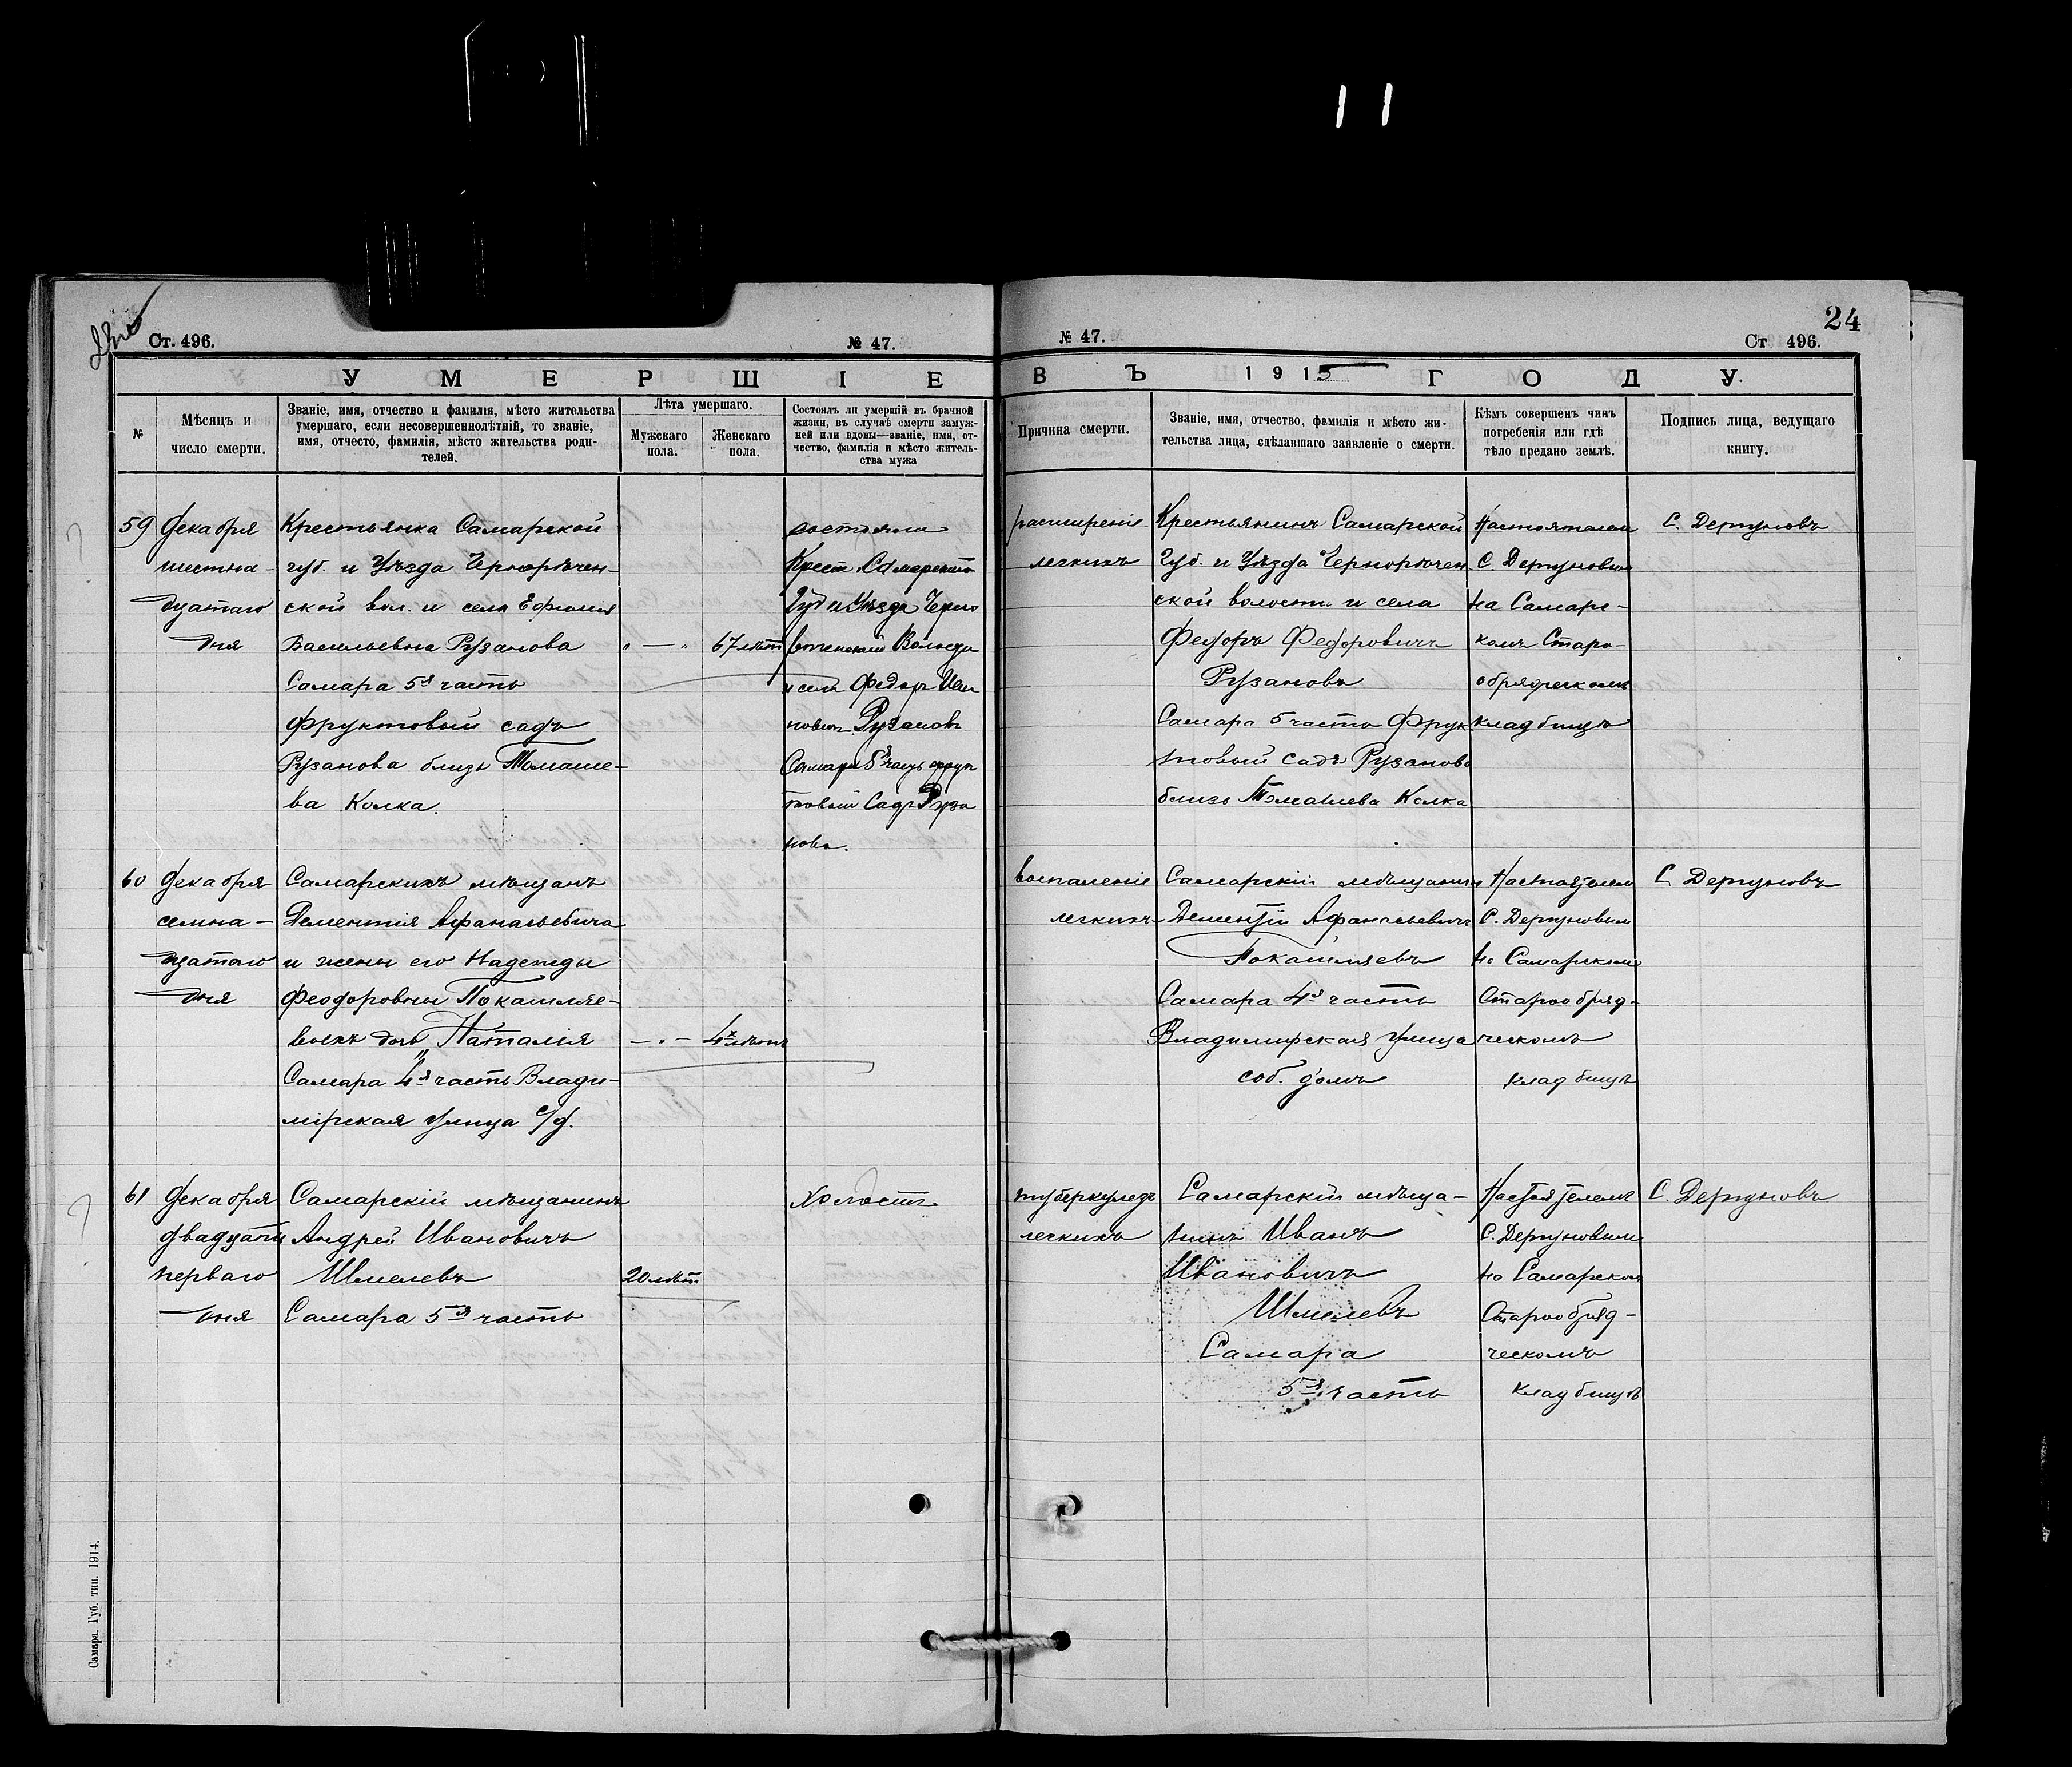 24
Ст. 496.
№ 47.
№ 47.
Ст 496.
УМЕРШІЕ
ВЪ 1915 ГОДУ.
№
Мѣсяцъ и
число смерти.
Званіе, имя, отчество и фамилія, мѣсто жительства
умершаго, если несовершеннолѣтній, то званіе,
имя, отчесто, фамилія, мѣсто жительства роди-
телей.
Лѣта умершаго.
Мужскаго
пола.
Женскаго
пола.
Состоялъ ли умершій въ брачной
жизни, въ случаѣ смерти замуж-
ней или вдовы—званіе, имя, от-
чество, фамилія и мѣсто житель-
ства мужа
Причина смерти.
Званіе, имя, отчество, фамилія и мѣсто жи-
тельства лица, сдѣлавшаго заявленіе о смерти.
Кѣмъ совершенъ чинъ
погребенія или гдѣ
тѣло предано землѣ.
Подпись лица, ведущаго
книгу.
59
Декабря
шестна-
дцатаго
дня
Крестьянка Самарской
губ. и Уѣзда Чернорѣчен-
ской вол. и села Ефимія
Васильевна Рузанова
Самара 5я часть
фруктовый садъ
Рузанова близъ Томаше-
ва Колка.
67 лѣтъ
состояла
Крест. Самарской
Губ и Уѣзда Черно
рѣченской Волости
и села Федоръ Ива
новичъ Рузановъ
Самара 5я часть фрук
товый Садъ Руза
нова.
расширеніе
легкихъ
Крестьянинъ Самарской
Губ. и Уѣзда Чернорѣчен
ской волости и села
Федоръ Федоровичъ
Рузановъ
Самара 5 часть Фрук
товый садъ Рузанова
близъ Томашева Колка
Настоятелемъ
С. Дергуновым
на Самарс-
комъ Старо-
обрядческомъ
кладбищѣ
С. Дергуновъ
60
Декабря
семна-
дцатаго
дня
Самарскихъ мѣщанъ
Дементія Афанасьевича
и жены его Надежды
Феодоровны Покашляе-
выхъ дочь Наталія
Самара 4я часть Влади-
мірская улица с/д.
4х лѣтъ
воспаленіе
легкихъ
Самарскій мѣщанинъ
Дементій Афанасьевичъ
Покашляевъ
Самара 4я часть
Владимірская улица
соб. домъ
Настоятелем
С. Дергуновым
на Самарскомъ
Старообряд-
ческомъ
кладбищѣ
С. Дергуновъ
61
Декабря
двадцать
перваго
дня
Самарскій мѣщанинъ
Андрей Ивановичъ
Шмелевъ
Самара 5я часть
20 лѣтъ
Холостъ
туберкулезъ
легкихъ
Самарскій мѣща-
нинъ Иванъ
Ивановичъ
Шмелевъ
Самара
5я часть
Настоятелемъ
С. Дергуновым
на Самарском
Старообряд-
ческомъ
кладбищѣ
С. Дергуновъ
Самара. Губ. тип. 1914.